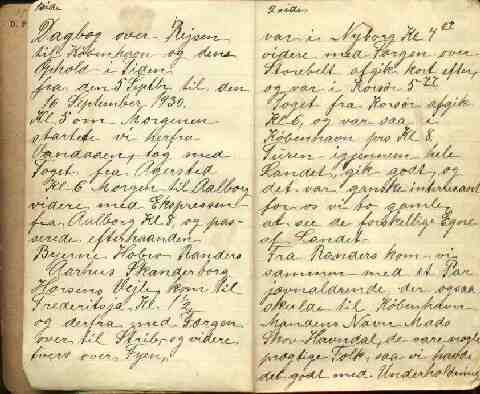 1 Side
Dagbog over Rejsen
til København og dens
Ophold i Tiden
fra den 5 Septbr til den
16 September 1930.
Kl 5 om Morgenen
startede vi herfra
Vandaasen, tog med
Toget fra Agersted
Kl 6 Morgen til Aalborg
videre med Ekspressen
fra Aalborg Kl 8, og pas-
serede efterhaanden
Byerne Hobro Randers
Aarhus Skanderborg
Horsens Vejle, kom til
Fredericia Kl. 1
og derfra med Færgen
over til Strib, og videre
tvers over Fyen,
2 side
var i Nyborg Kl 4
videre med Færgen over
Storebelt afgik kort efter,
og var i Korsør 5
Toget fra Korsør afgik
Kl 6, og var saa i
København præs Kl 8,
Turen igjennem hele
Landet, gik godt, og
det var ganske interesant
for os to gamle,
at see de forskellige Egne
af Landet
Fra Randers kom vi
sammen med et Par
jævnaldrende der ogsaa
skulde til København
Mandens Navn Mads
Thor Havndal, de vare nogle
prægtige Folk, saa vi havde
det godt med Underholdning